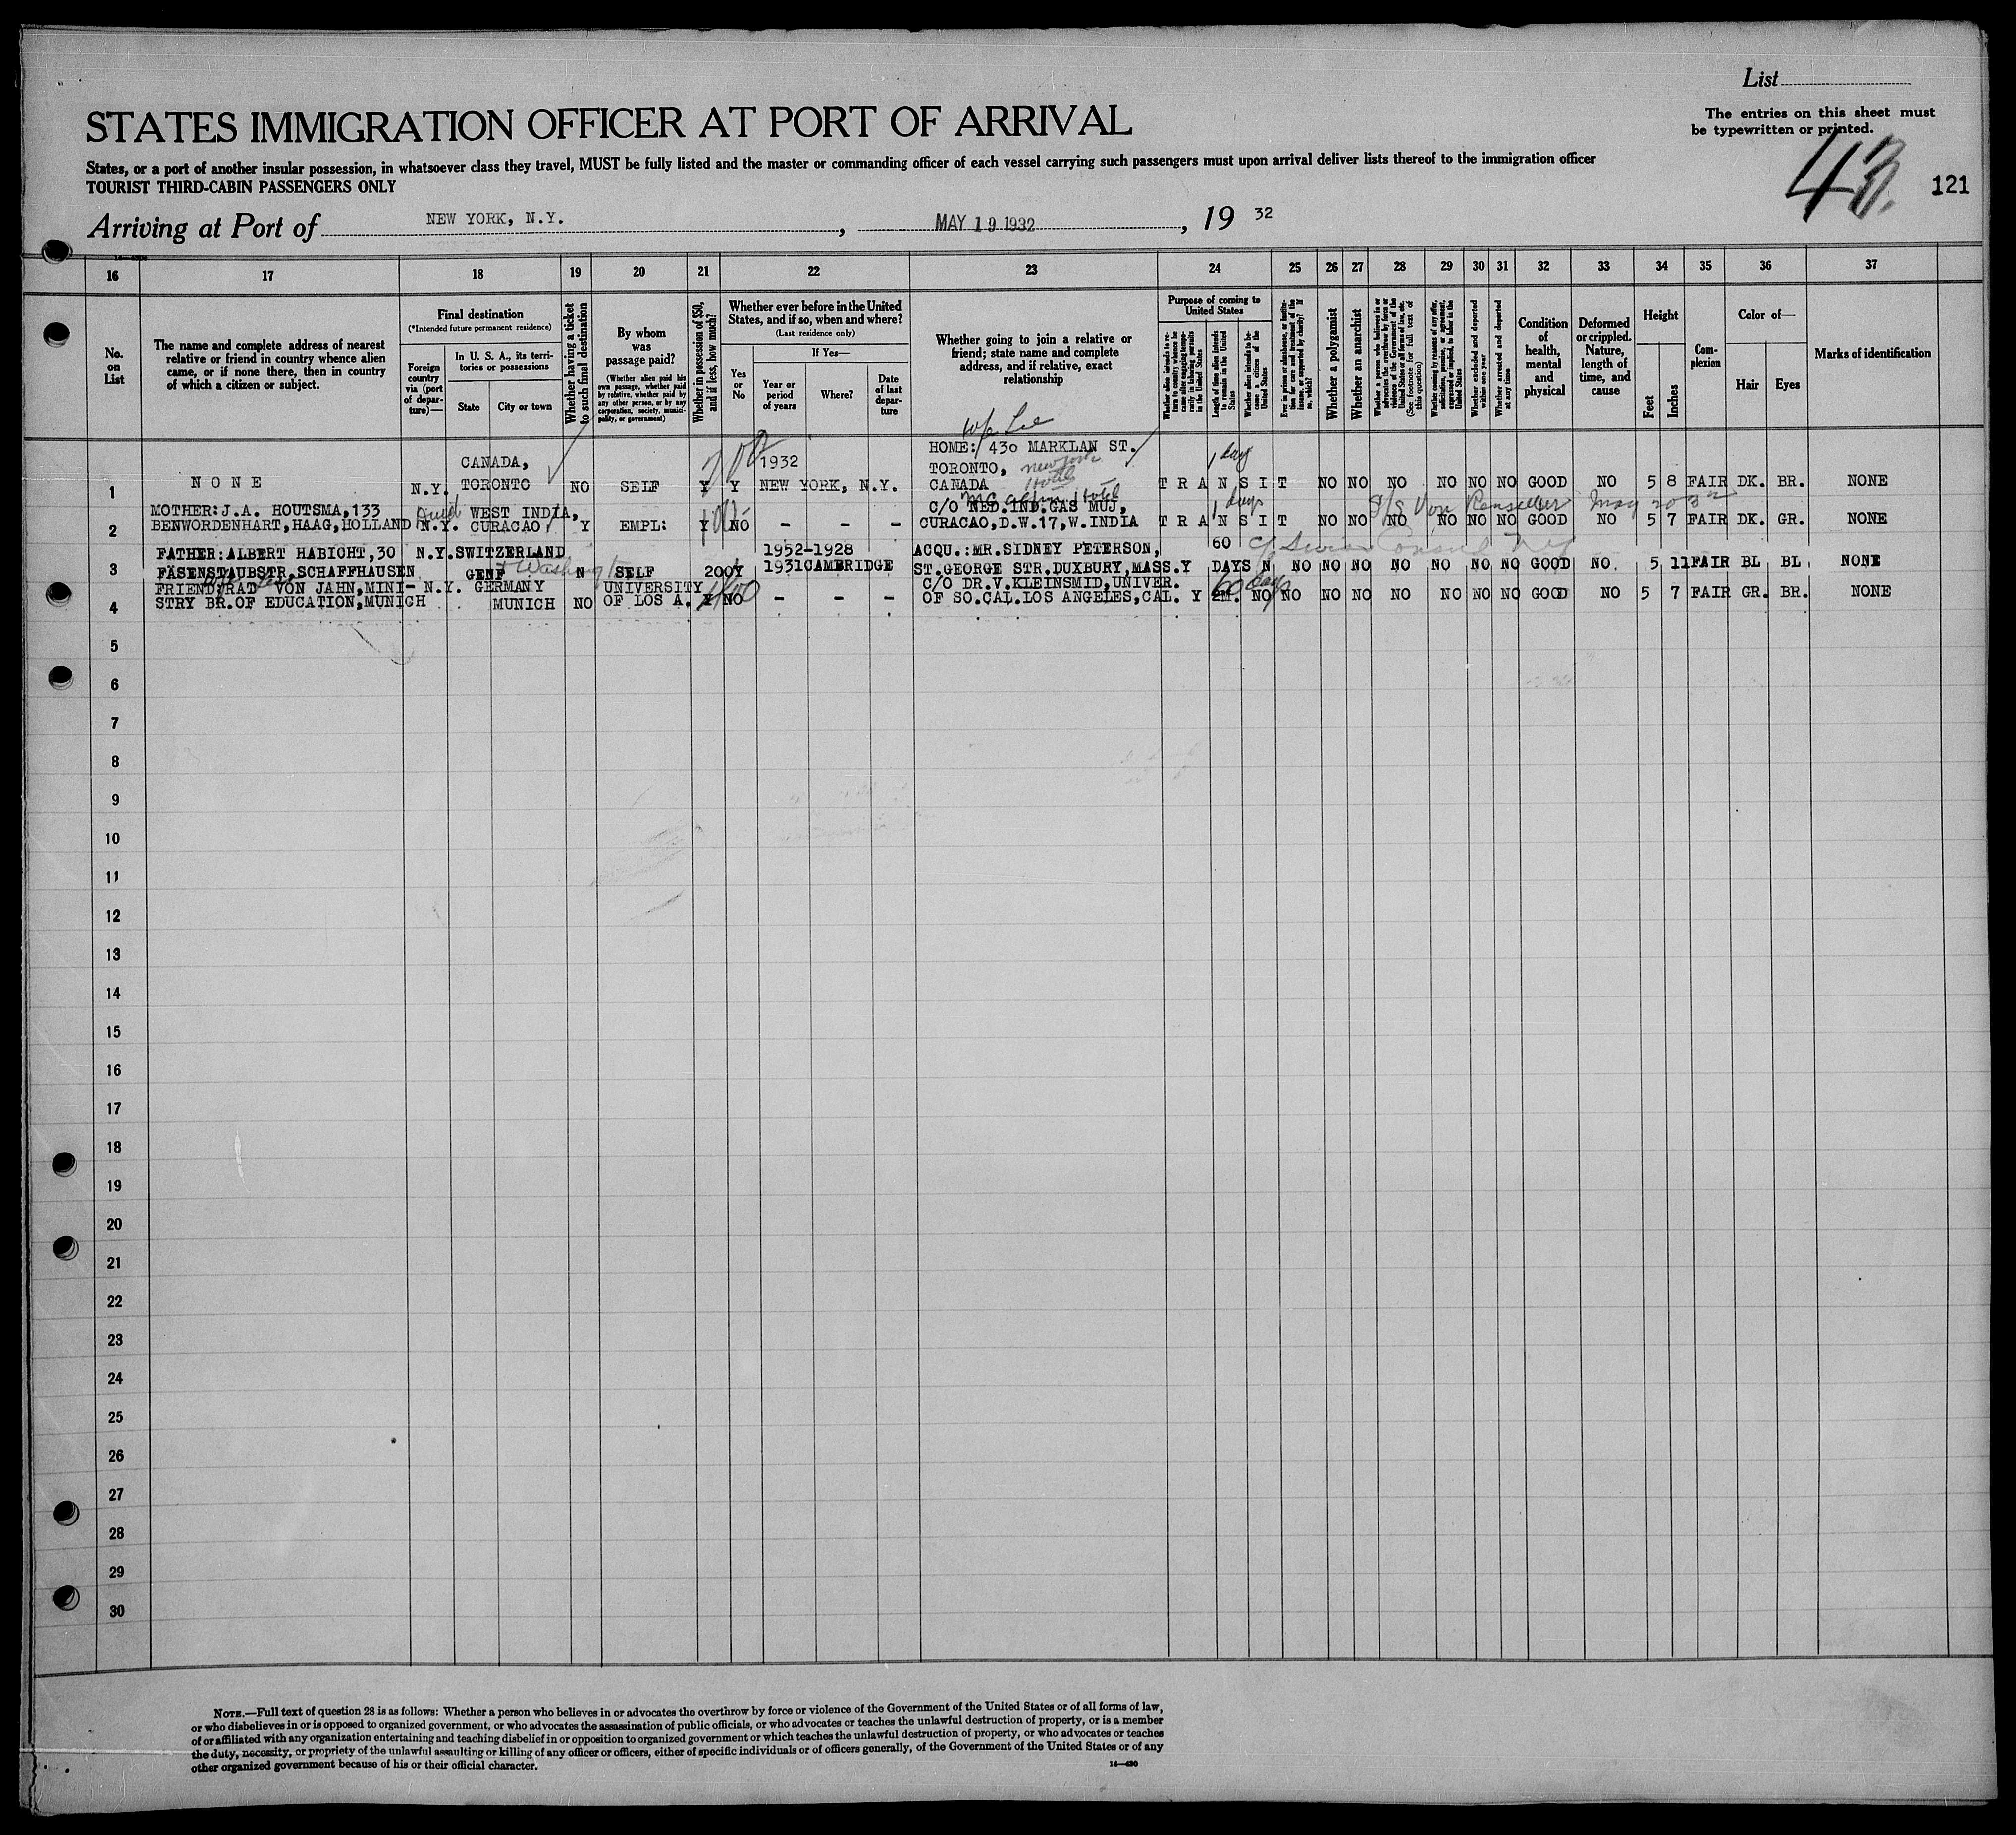 List
STATES IMMIGRATION OFFICER AT PORT OF ARRIVAL
The entries on this sheet must
be typewritten or printed.
States, or a port of another insular possession, in whatsoever class they travel, MUST be fully listed and the master or commanding officer of each vessel carrying such passengers must upon arrival deliver lists thereof to the immigration officer
TOURIST THIRD-CABIN PASSENGERS ONLY
43. 121
Arriving at Port of NEW YORK, N.Y. , MAY 19 1932 , 19 32
16 17 18 19 20 21 22 23 24 25 26 27 28 29 30 31 32 33 34 35 36 37
No. on List
The name and complete address of nearest
relative or friend in country whence alien
came, or if none there, then in country
of which a citizen or subject.
Final destination
(*Intended future permanent residence)
Foreign country via (port of departure)—
In U. S. A., its territories or possessions
State
City or town
Whether having a ticket to such final destination
By whom was passage paid?
(Whether alien paid his own passage, whether paid by relative, whether paid by any other person, or by any corporation, society, municipality, or government)
Whether in possession of $50, and if less, how much?
Whether ever before in the United States, and if so, when and where?
(Last residence only)
If Yes—
Yes or No
Year or period of years
Where?
Date of last departure
Whether going to join a relative or
friend; state name and complete
address, and if relative, exact
relationship
Purpose of coming to United States
Whether alien intends to return to country whence he came after engaging temporarily in laboring pursuits in the United States
Length of time alien intends to remain in the United States
Whether alien intends to become a citizen of the United States
Ever in prison or almshouse, or institution for care and treatment of the insane, or supported by charity? If so, which?
Whether a polygamist
Whether an anarchist
Whether a person who believes in or advocates the overthrow by force or violence of the Government of the United States or all forms of law, etc. (See footnote for full text of this question)
Whether coming by reasons of any offer, solicitation, promise, or agreement, expressed or implied, to labor in the United States
Whether excluded and deported within one year
Whether arrested and deported at any time
Condition of health, mental and physical
Deformed or crippled. Nature, length of time, and cause
Height
Feet
Inches
Complexion
Color of—
Hair
Eyes
Marks of identification
1 NONE N.Y. CANADA, TORONTO NO SELF Y Y 1932 NEW YORK, N.Y. HOME: 430 MARKLAN ST. TORONTO, CANADA TRANSIT 1 day NO NO NO NO NO NO GOOD NO 5 8 FAIR DK. BR. NONE
2 MOTHER: J.A. HOUTSMA, 133 BENWORDENHART, HAAG, HOLLAND N.Y. WEST INDIA, CURACAO Y EMPL: Y NO – – – C/O NED.IND.GAS MIJ, CURACAO, D.W.17, W.INDIA TRANSIT 1 days NO NO NO NO NO NO GOOD NO 5 7 FAIR DK. GR. NONE
3 FATHER: ALBERT HABICHT, 30 FÄSENSTAUBSTR. SCHAFFHAUSEN N.Y. SWITZERLAND GENF N SELF 200Y 1952-1928 1931 CAMBRIDGE ACQU.: MR. SIDNEY PETERSON, ST. GEORGE STR. DUXBURY, MASS. Y 60 DAYS N NO NO NO NO NO NO NO GOOD NO. 5 11 FAIR BL BL NONE
4 FRIEND: RAT VON JAHN, MINI- STRY BR. OF EDUCATION, MUNICH N.Y. GERMANY MUNICH NO UNIVERSITY OF LOS A. Y NO – – – C/O DR. V. KLEINSMID, UNIVER. OF SO. CAL. LOS ANGELES, CAL. Y 2M. 60 days NO NO NO NO NO NO NO NO GOOD NO 5 7 FAIR GR. BR. NONE
5
6
7
8
9
10
11
12
13
14
15
16
17
18
19
20
21
22
23
24
25
26
27
28
29
30
NOTE.—Full text of question 28 is as follows: Whether a person who believes in or advocates the overthrow by force or violence of the Government of the United States or of all forms of law,
or who disbelieves in or is opposed to organized government, or who advocates the assassination of public officials, or who advocates or teaches the unlawful destruction of property, or is a member
of or affiliated with any organization entertaining and teaching disbelief in or opposition to organized government or which teaches the unlawful destruction of property, or who advocates or teaches
the duty, necessity, or propriety of the unlawful assaulting or killing of any officer or officers, either of specific individuals or of officers generally, of the Government of the United States or of any
other organized government because of his or their official character.
14—430